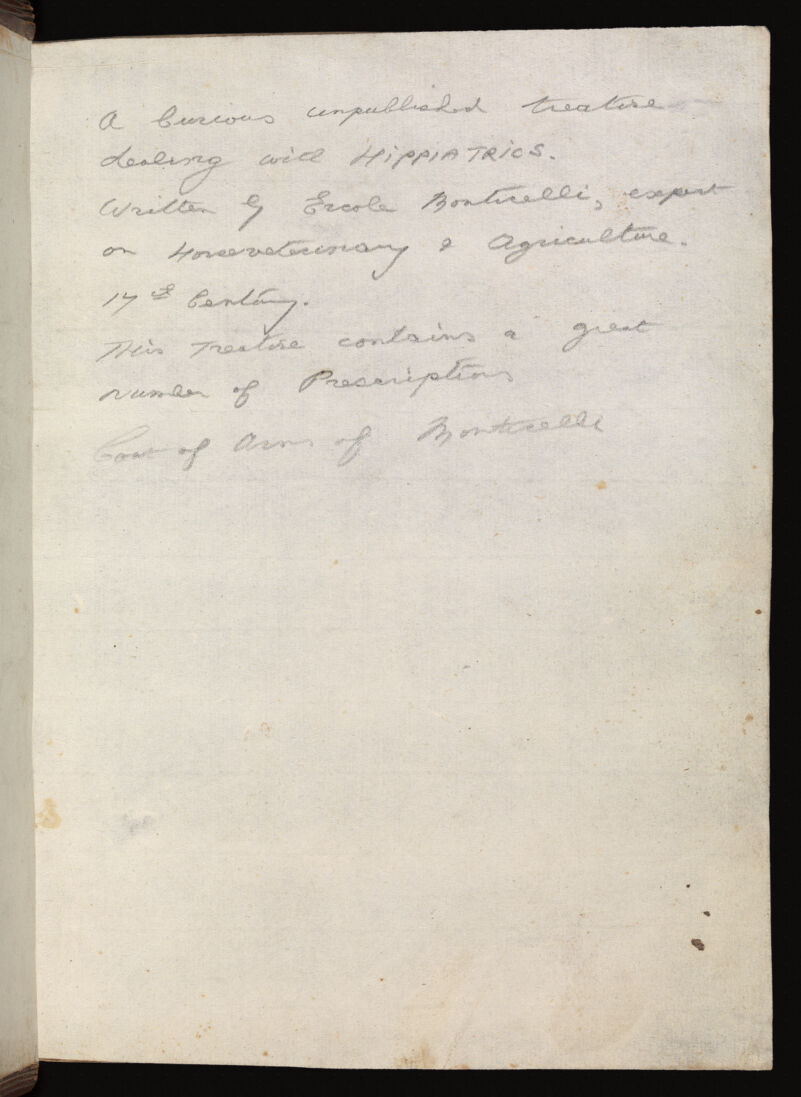 A Curious unpublished treatise
dealing with HIPPIATRICS.
Written by Ercole Monticelli, expert
on Horseveterinary & Agriculture.
17th Century.
This Treatise contains a great
number of Prescriptions
Coat of Arms of Monticelli